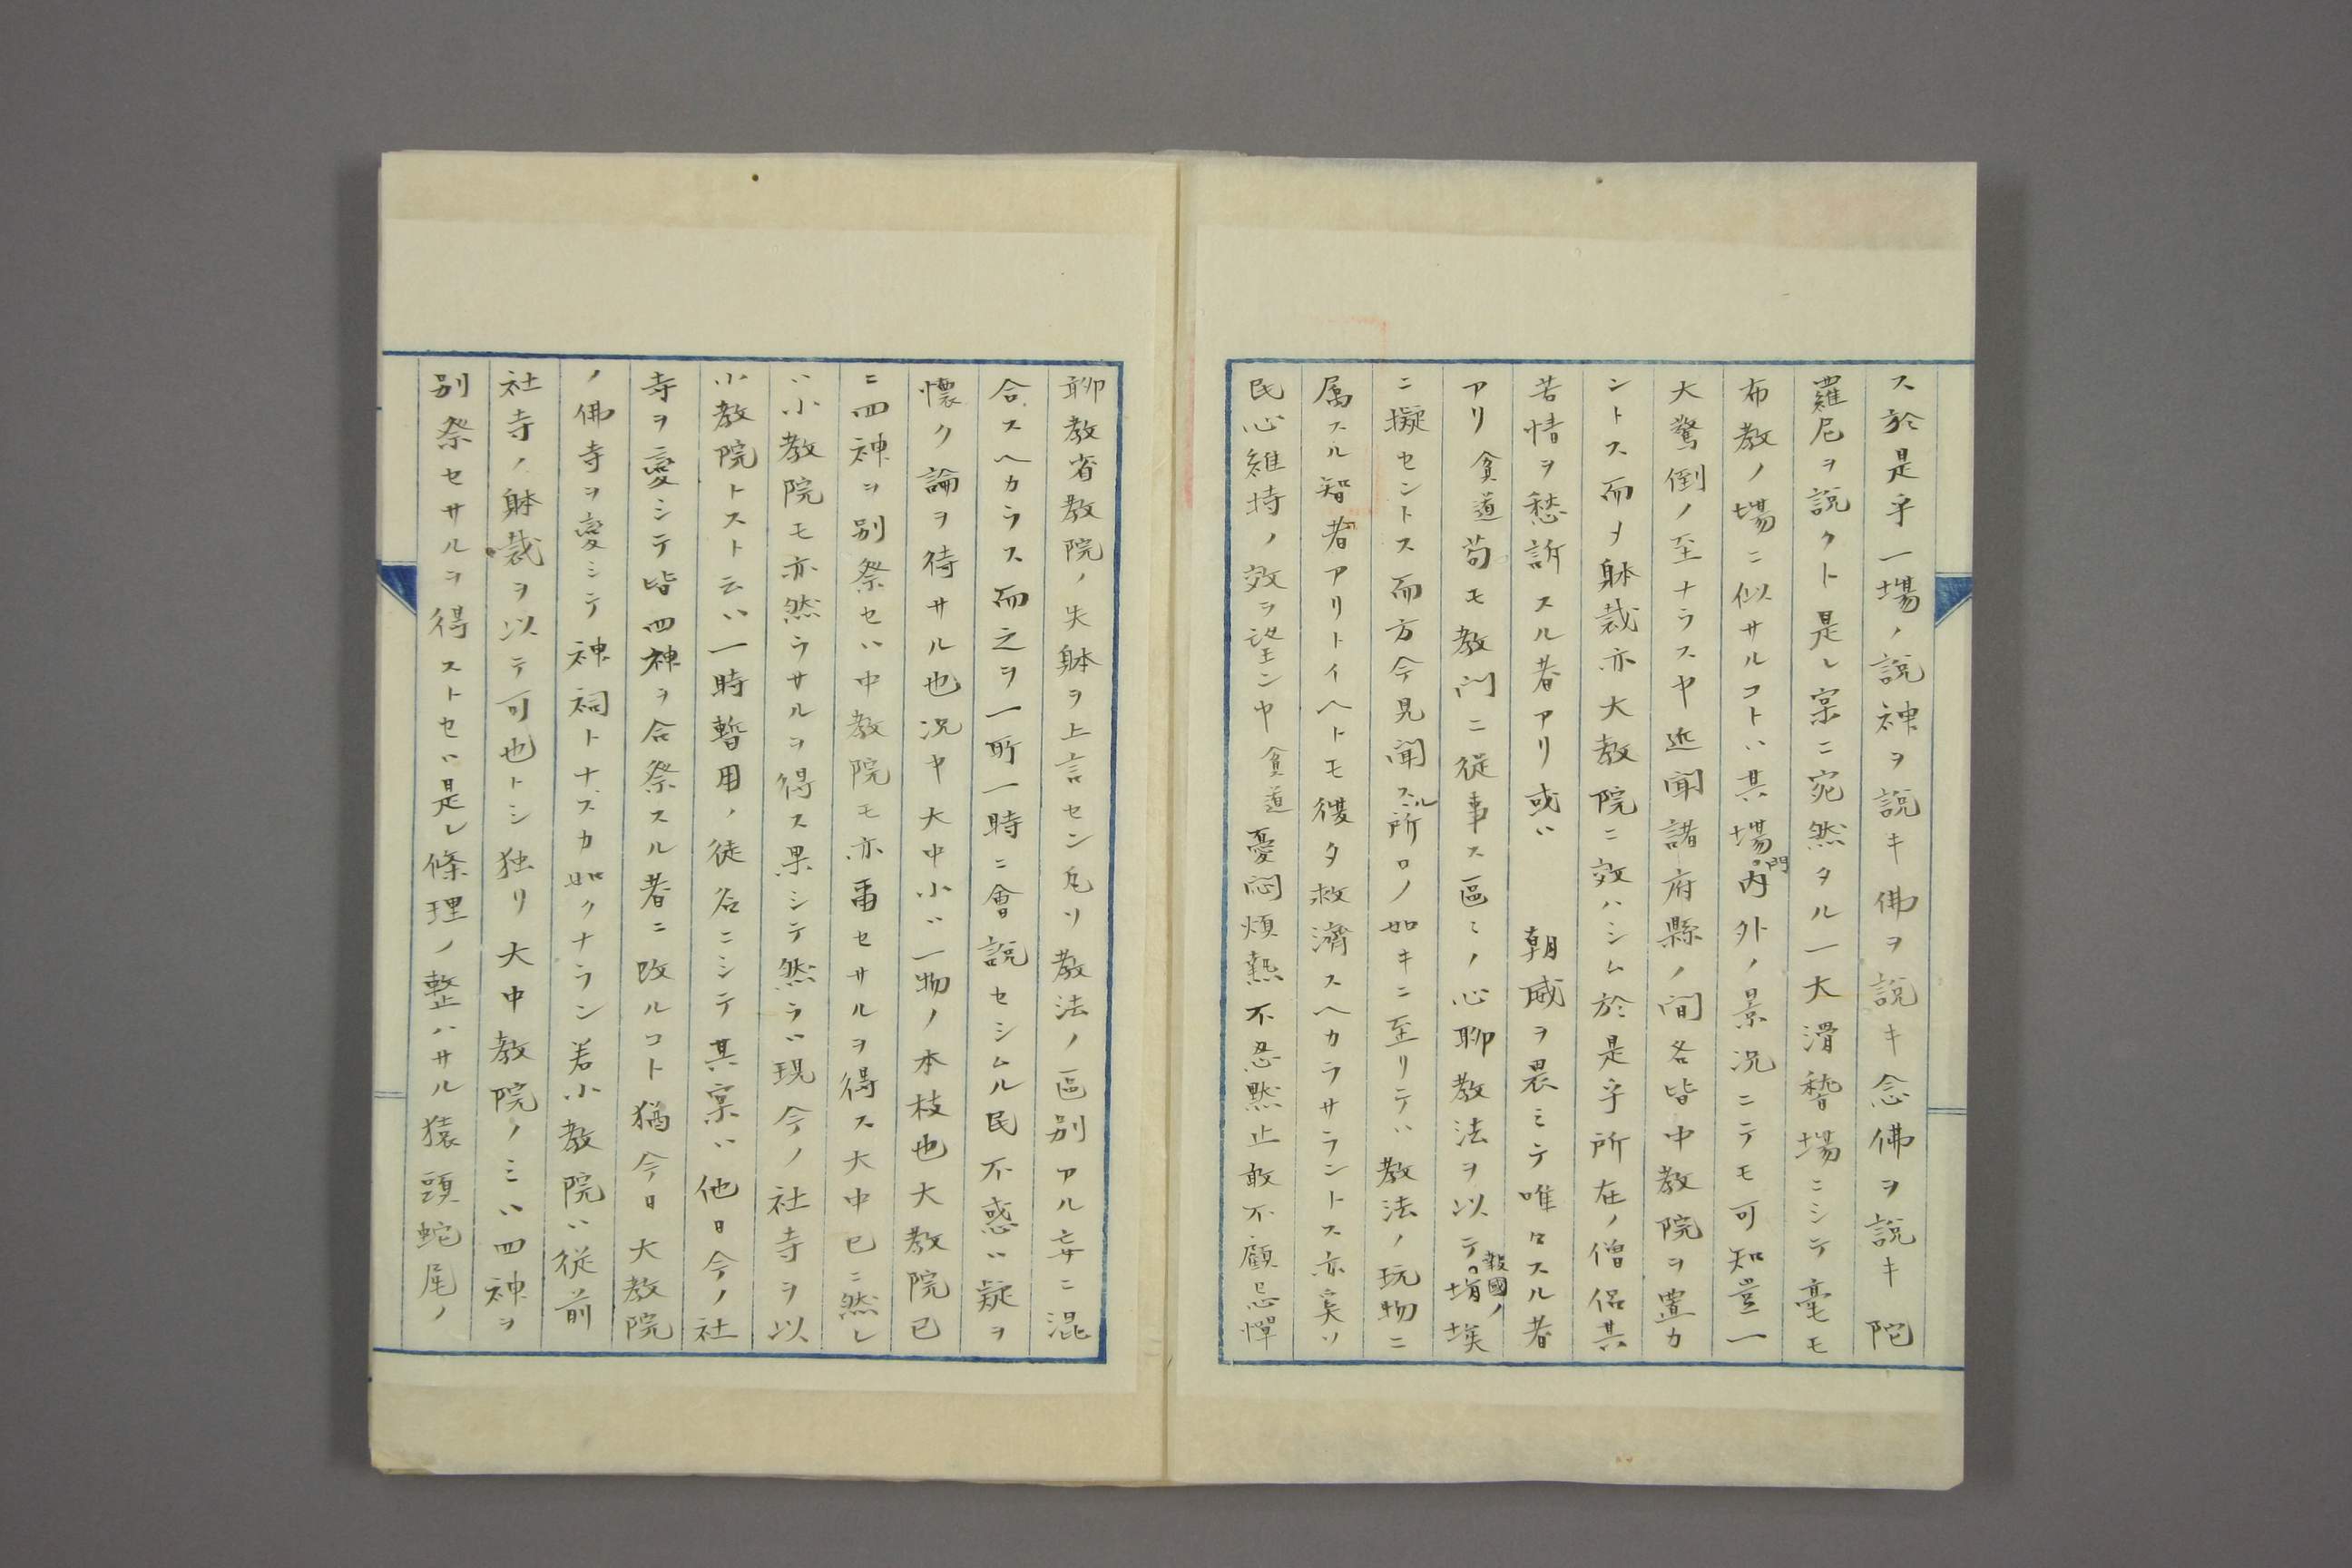 ス於是乎一場ノ説神ヲ説キ佛ヲ説キ念佛ヲ説キ陀
羅尼ヲ説クト是レ寔ニ宛然タル一大滑稽場ニシテ毫モ
布教ノ場ニ似サルコトハ其場門内外ノ景况ニテモ可知豈一
大驚倒ノ至ナラスヤ近聞諸府縣ノ間各皆中教院ヲ置カ
ントス而メ躰裁亦大教院ニ效ハシム於是乎所在ノ僧侶其
苦情ヲ愁訴スル者アリ或ハ 朝威ヲ畏ミテ唯々スル者
アリ貧道苟モ教門ニ従事ス區々ノ心聊教法ヲ以テ報國ノ埃
ニ擬セントス而方今見聞スル所ロノ如キニ至リテハ教法ノ玩物ニ
属スル智者アリトイヘトモ復タ救濟スヘカラサラントス亦奚ソ
民心維持ノ效ヲ望ンヤ貧道憂悶煩熱不忍黙止敢不顧忌憚
聊教省教院ノ失躰ヲ上言セン凡ソ教法ノ區別アル妄ニ混
合スヘカラス而之ヲ一所一時ニ會説セシムル民不惑ハ疑ヲ
懐ク論ヲ待サル也况ヤ大中小ハ一物ノ本枝也大教院已
ニ四神ヲ別祭セハ中教院モ亦爾セサルヲ得ス大中已ニ然レ
ハ小教院モ亦然ラサルヲ得ス果シテ然ラハ現今ノ社寺ヲ以
小教院トスト云ハ一時暫用ノ徒名ニシテ其寔ハ他日今ノ社
寺ヲ變シテ皆四神ヲ合祭スル者ニ改ルコト猶今日大教院
ノ佛寺ヲ變シテ神祠トナスカ如クナラン若小教院ハ従前
社寺ノ躰裁ヲ以テ可也トシ独リ大中教院ノミハ四神ヲ
別祭セサルヲ得ストセハ是レ條理ノ整ハサル猿頭蛇尾ノ